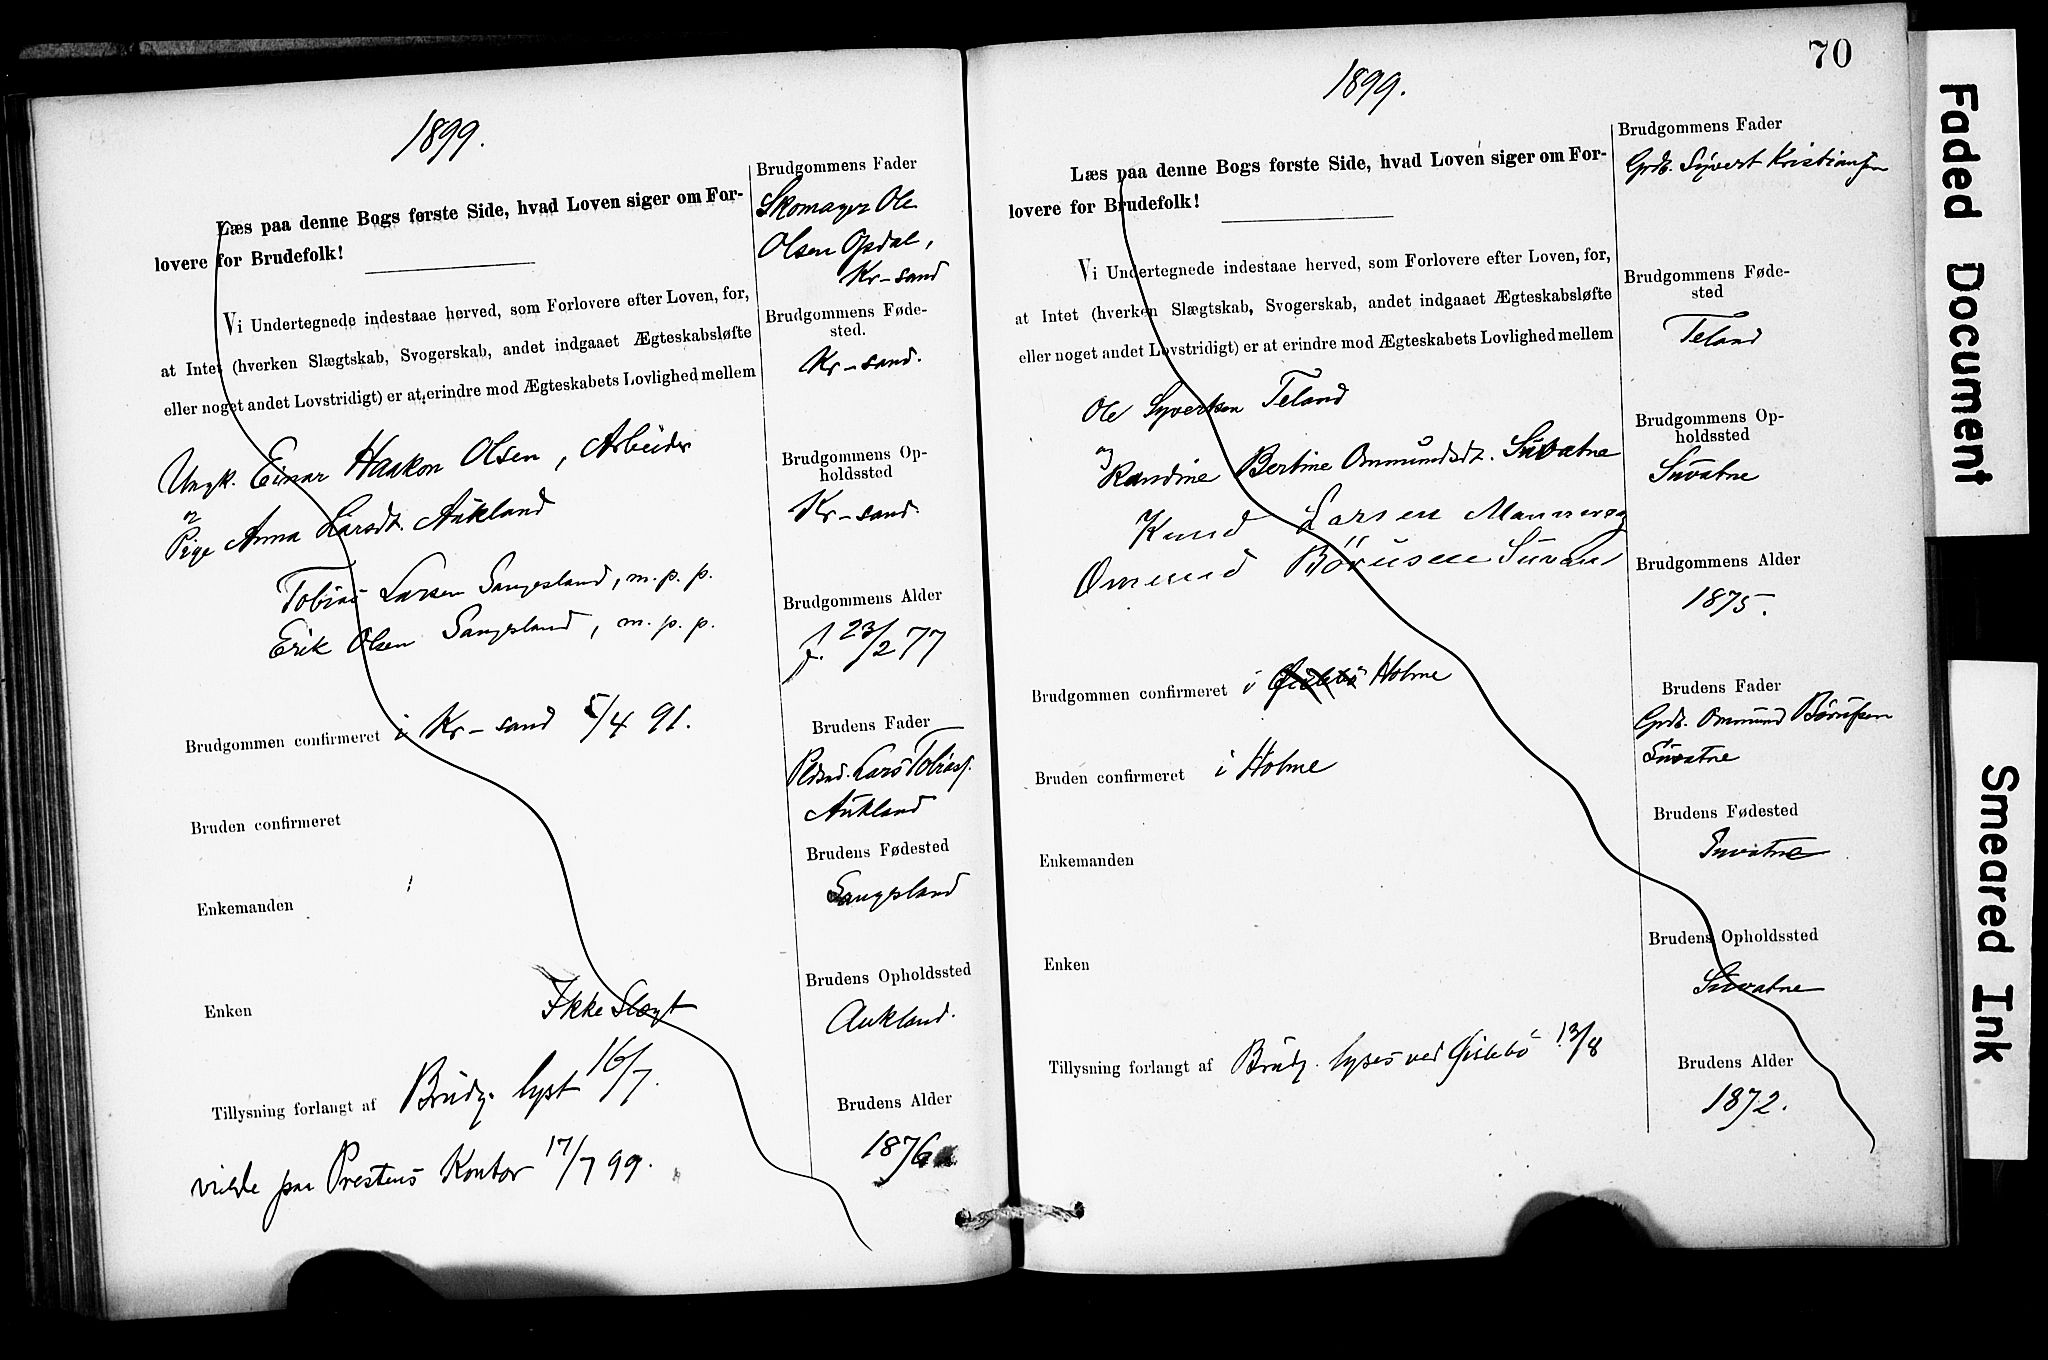 1899.
Læs paa denne Bogs første Side, hvad Loven siger om For-
lovere for Brudefolk!
Vi Undertegnede indestaae herved, som Forlovere efter Loven, for,
at Intet (hverken Slægtskab, Svogerskab, andet indgaaet Ægteskabsløfte
eller noget andet Lovstridigt) er at erindre mod Ægteskabets Lovlighed mellem
Ungk. Einar Haakon Olsen, Arbeider
og
Pige Anna Larsdt. Aukland
Tobias Larsen Sangesland, m. p. p.
Erik Olsen Sangesland, m. p. p.
Brudgommen confirmeret i Kr-sand 5/4 91.
Bruden confirmeret
Enkemanden
Enken
Ikke Slægt
Tillysning forlangt af Brudg. lyst 16/7.
viede paa Prestens Kontor 17/7 99.
Brudgommens Fader
Skomager Ole
Olsen Opdal,
Kr-sand
Brudgommens Føde-
sted.
Kr-sand.
Brudgommens Op-
holdssted
Kr-sand.
Brudgommens Alder
f. 23/2 77
Brudens Fader
Pldsmd. Lars Tobiass.
Aukland
Brudens Fødested
Sangesland
Brudens Opholdssted
Aukland.
Brudens Alder
1876
70
1899.
Læs paa denne Bogs første Side, hvad Loven siger om For-
lovere for Brudefolk!
Vi Undertegnede indestaae herved, som Forlovere efter Loven, for,
at Intet (hverken Slægtskab, Svogerskab, andet indgaaet Ægteskabsløfte
eller noget andet Lovstridigt) er at erindre mod Ægteskabets Lovlighed mellem
Ole Syvertsen Teland
og
Randine Bertine Ommundsdt. Suvatne
Knud Larsen Mannevog
Omund Børusen Suvan
Brudgommen confirmeret i Øislebö Holme
Bruden confirmeret i Holme
Enkemanden
Enken
Tillysning forlangt af Brudg. lyses ved Øislebö 13/8
Brudgommens Fader
Grdb. Syvert Kristiansen
Brudgommens Føde-
sted
Teland
Brudgommens Op-
holdssted
Suvatne
Brudgommens Alder
1875.
Brudens Fader
Grdb. Ommund Børufsen
Suvatne
Brudens Fødested
Suvatne
Brudens Opholdssted
Suvatne
Brudens Alder
1872.
Faded Document
Smeared Ink